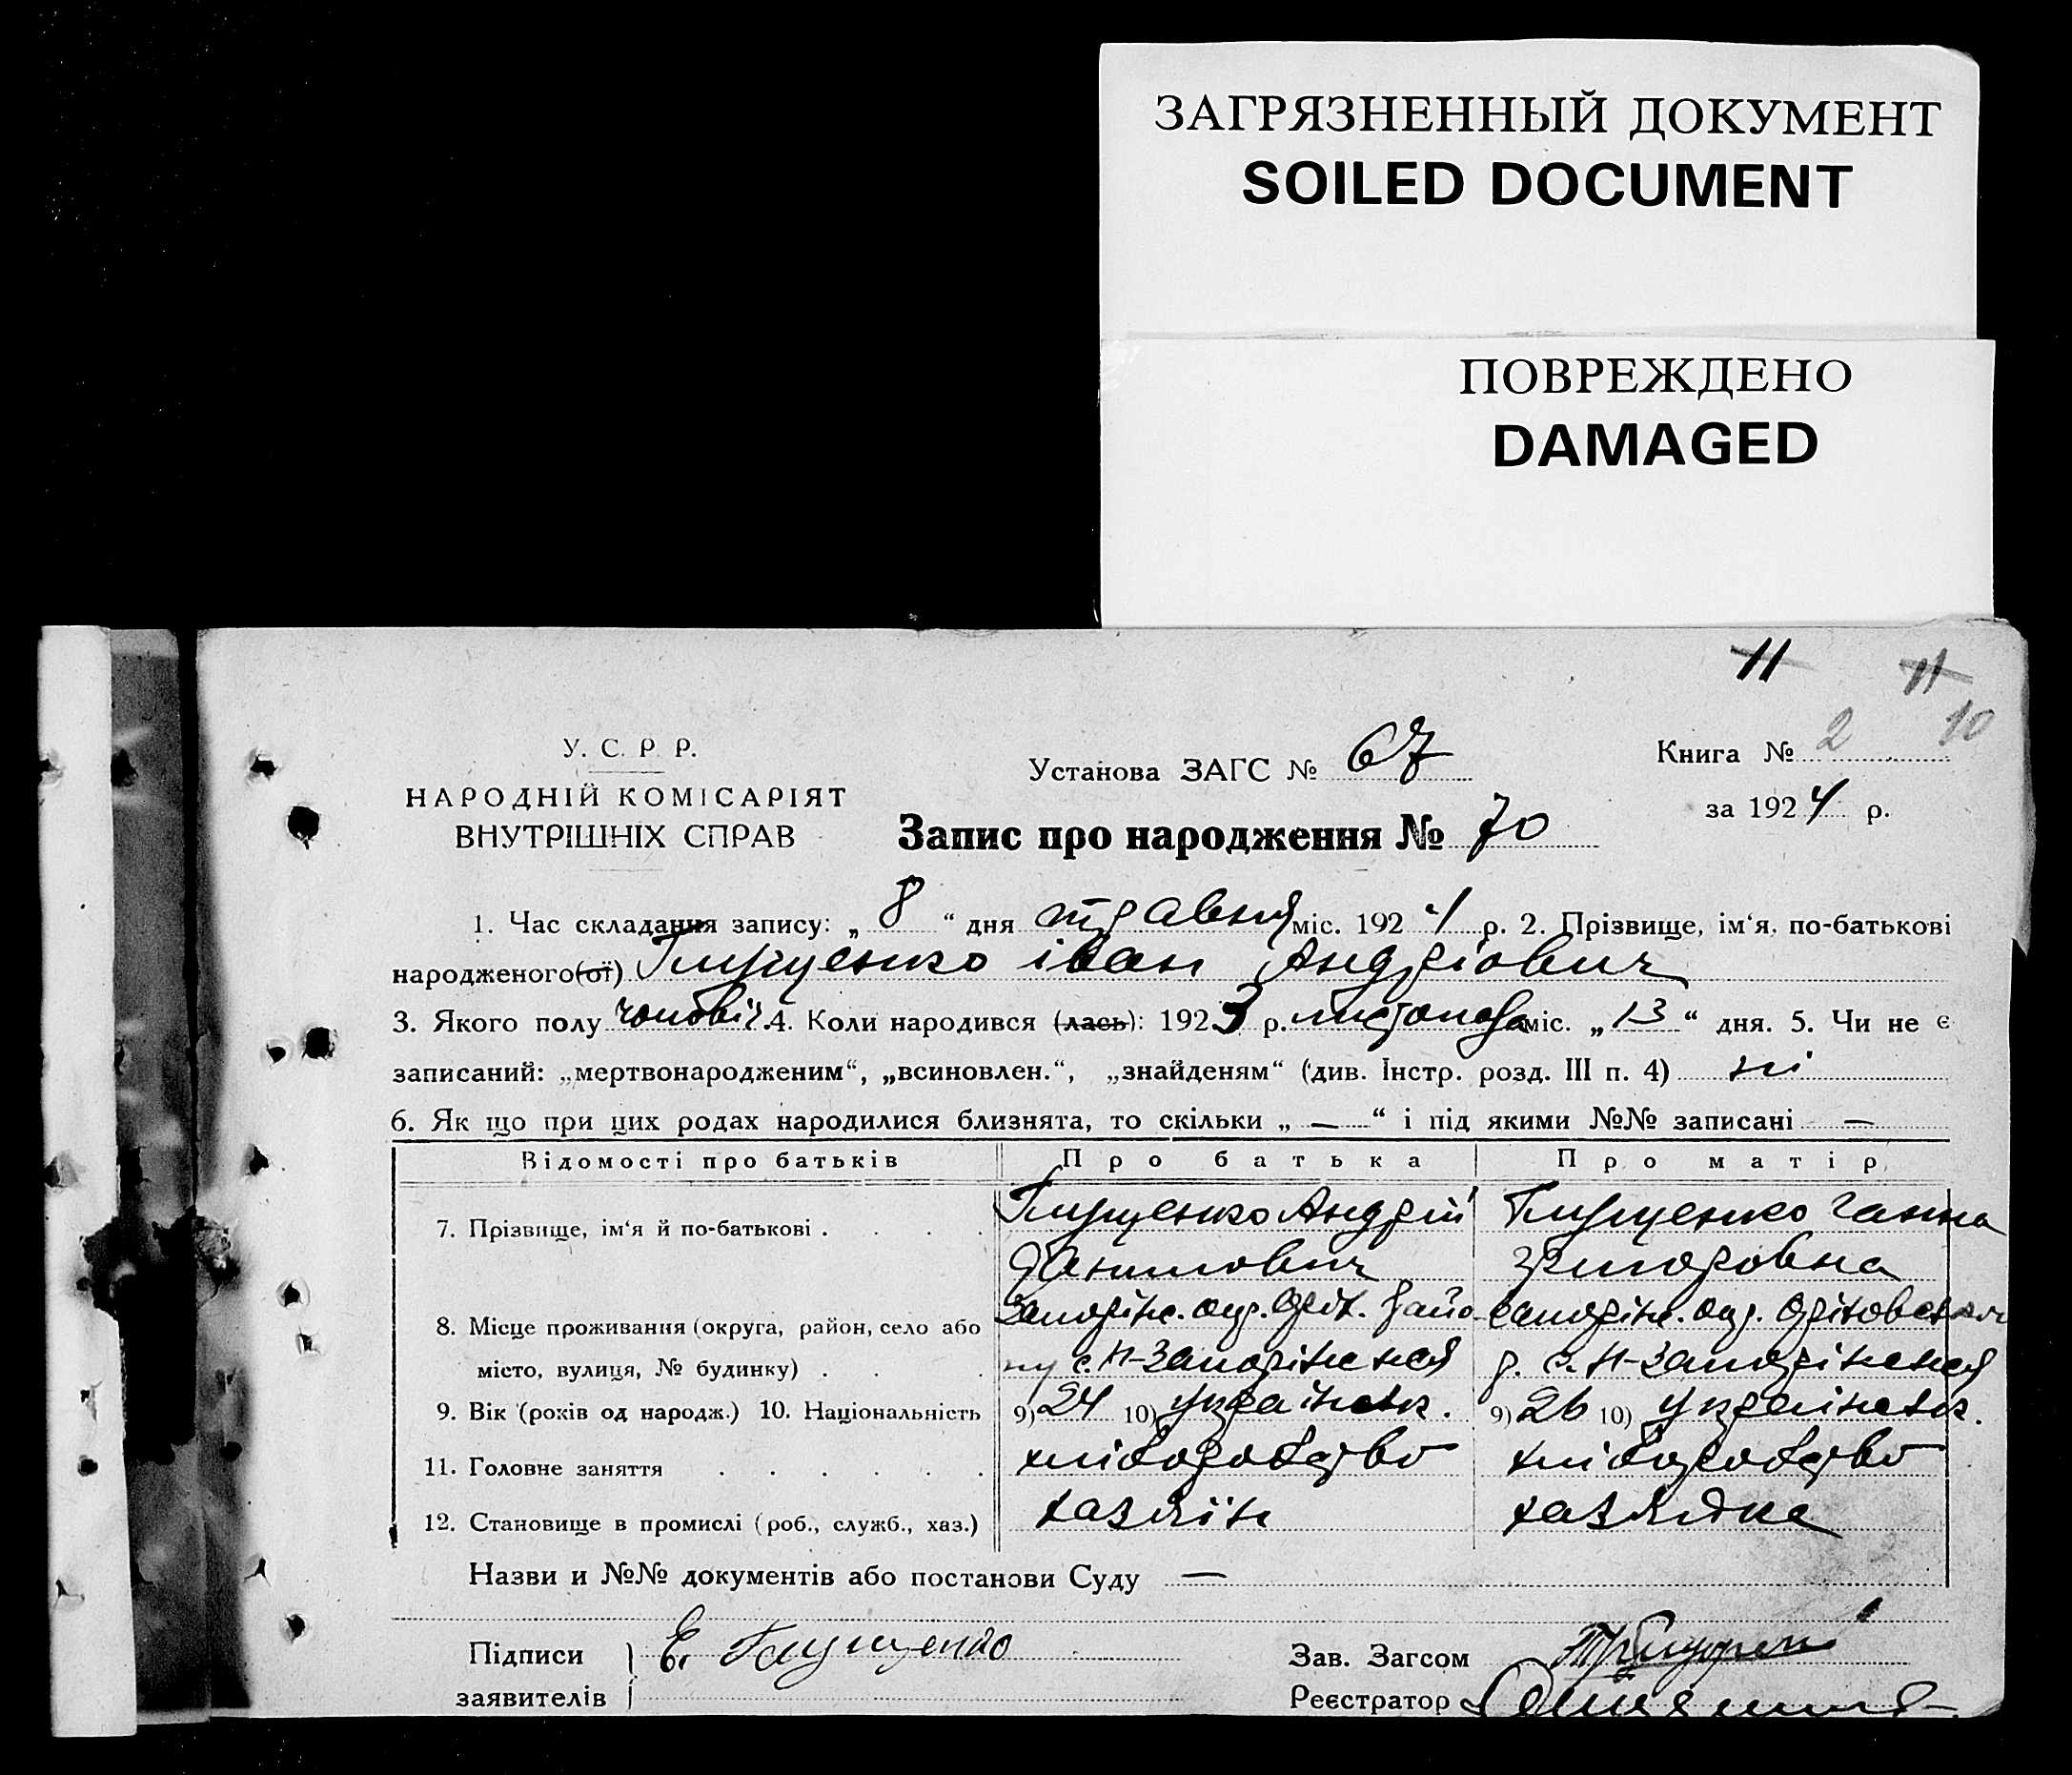 ЗАГРЯЗНЕННЫЙ ДОКУМЕНТ
SOILED DOCUMENT
ПОВРЕЖДЕНО
DAMAGED
11 11
10
У. С. Р. Р.
НАРОДНІЙ КОМІСАРІЯТ
ВНУТРІШНІХ СПРАВ
Установа ЗАГС № 67
Книга № 2
за 1924 р.
Запис про народження № 70
1. Час складання запису: „ 8 “ дня травня міс. 1924 р. 2. Прізвище, ім‘я, по-батькові
народженого(ої) Глущенко іван Андріович
3. Якого полу чоловіч. 4. Коли народився (лась): 1923 р. листопада міс. „ 13 “ дня. 5. Чи не є
записаний: „мертвонародженим“, „всиновлен.“, „знайденям“ (див. Інстр. розд. III п. 4) ні
6. Як що при цих родах народилися близнята, то скільки „ — “ і під якими №№ записані —
Відомості про батьків Про батька Про матір
7. Прізвище, ім‘я й по-батькові . Глущенко Андрій Глущенко Ганна
Данилович Григоровна
8. Місце проживання (округа, район, село або Запоріж. окр. Оріх. райо- Запоріж. окр. Оріховськ
місто, вулиця, № будинку) . ну с. Н-Запоріжжя р. с. Н-Запоріжжя
9. Вік (років од народж.) 10. Національність 9) 24 10) Українськ. 9) 26 10) Українськ.
11. Головне заняття хліборобство хліборобство
12. Становище в промислі (роб., служб., хаз.) хазяїн хазяйка
Назви и №№ документів або постанови Суду —
Підписи Е. Глущенко
заявителів
Зав. Загсом
Реєстратор